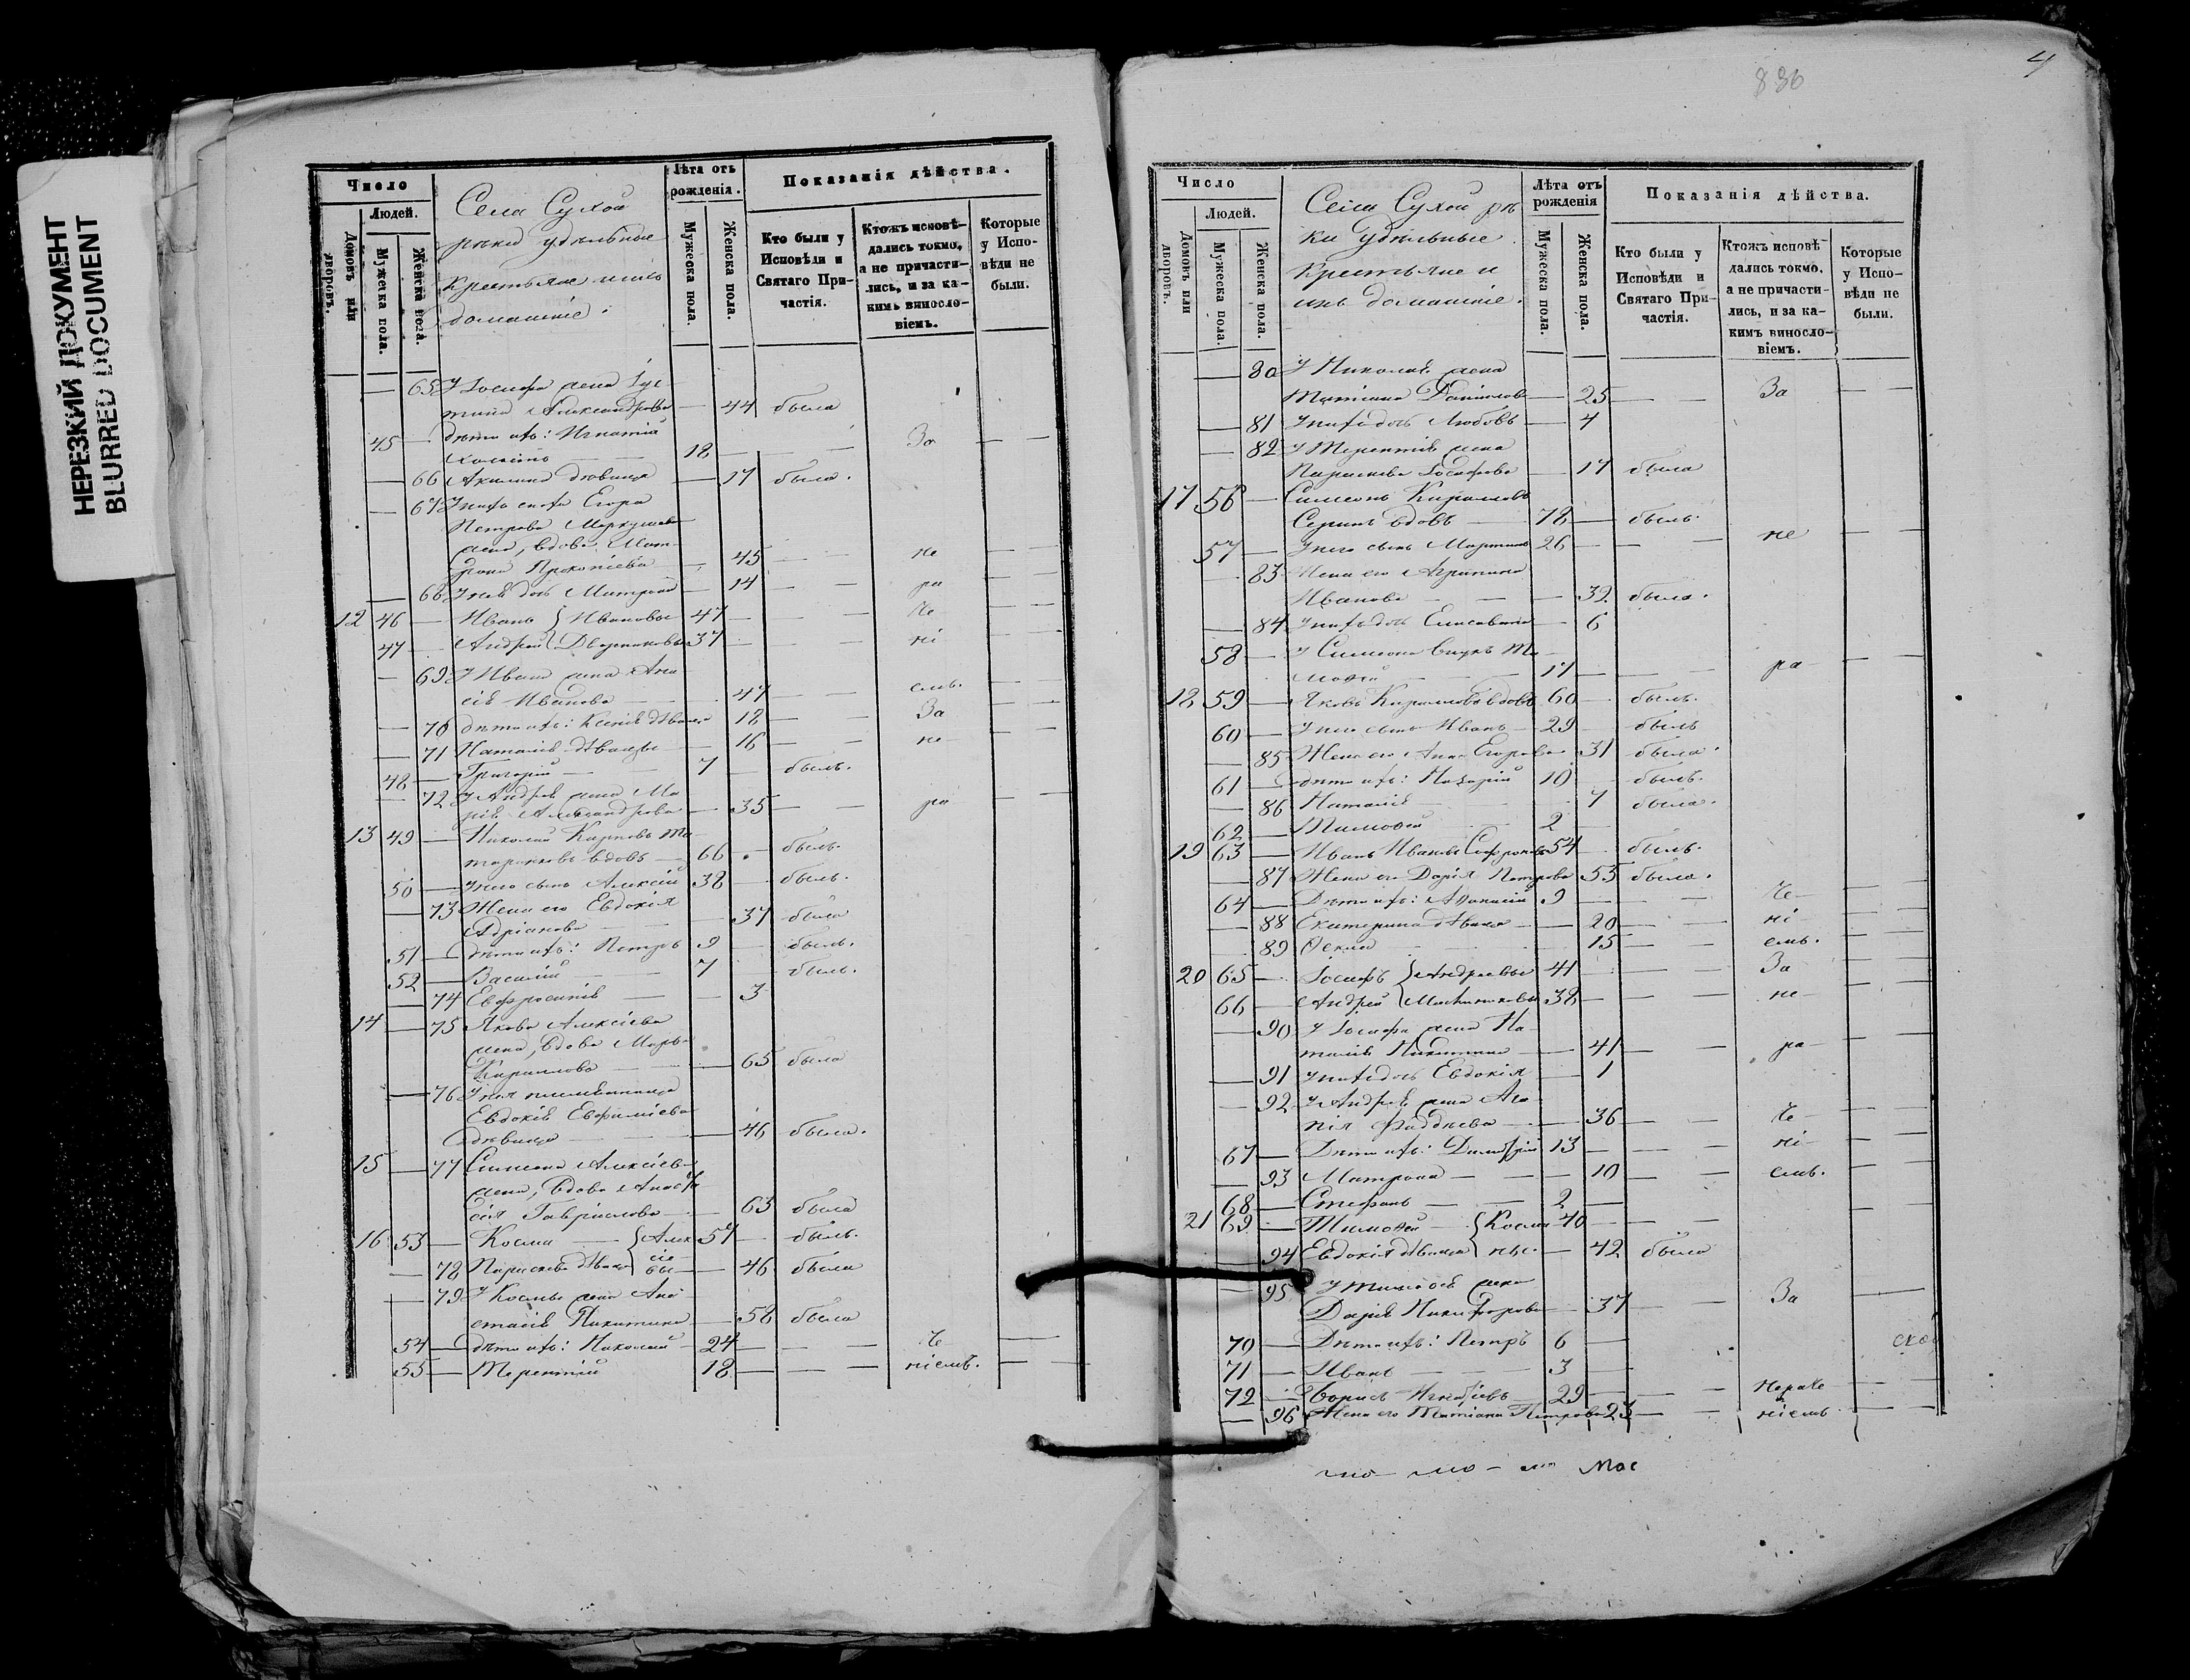 НЕРЕЗКИЙ ДОКУМЕНТ
BLURRED DOCUMENT
Число
Людей.
Домовъ или дворовъ.
Мужеска пола.
Женска пола.
Села Сухой
рѣки удѣльные
крестьяне и ихъ
домашніе:
Лѣта отъ
рожденія.
Мужеска пола.
Женска пола.
Показанія дѣйства.
Кто были у
Исповѣди и
Святаго При-
частія.
Ктожъ исповѣ-
дались токмо,
а не причасти-
лись, и за ка-
кимъ винсло-
віемъ.
Которые
у Испо-
вѣди не
были.
— 65 У Іосифа жена Іус-
тина Александрова — 44 была
45 — дѣти ихъ: Игнатій
холостъ — 18 — За —
— 66 Акилина дѣвица — 17 была.
— 67 У нихъ сноха Егора
Петрова
жена, вдова Мат-
рона Прокопіева — 45 — не —
— 68 У нея дочь Матрона — 14 — ра —
12 46 — Иванъ Ивановы 47 — Че —
47 — Андрей Дворниковы 37 — ні —
— 69 У Ивана жена Ана-
сія Иванова — 47 — емъ. —
— 70 дѣти ихъ: Ксенія дѣвица 18 — За —
— 71 Наталія дѣвица — 16 — не —
48 — Григорій — 7 — былъ.
— 72 У Андрея жена Ма-
рія Александрова — 35 — ра —
13 49 — Николай Карповъ Та-
тариновъ вдовъ — 66 — былъ.
50 — У него сынъ Алексій 38 — былъ.
— 73 Жена его Евдокія
Адріанова — 37 была
51 — дѣти ихъ: Петръ 9 — былъ.
52 — Василій — 7 — былъ.
— 74 Евфросинія — 3
14 — 75 Якова Алексіева
жена, вдова Марѳа
Кириллова — 65 была
— 76 У нея племянница
Евдокія Евфиміева
дѣвица — 46 была.
15 — 77 Симеона Алексіева
жена, вдова Анаста-
сія Гавріилова — 63 была
16 53 — Косма — Алек- 57 — былъ.
— 78 Параскева дѣвица сіевы — 46 была
— 79 У Космы жена Ана-
стасія Никитина — 58 была
54 — дѣти ихъ: Николай — 24 — Че —
55 — Терентій — 18 — ніемъ. —
836
4
Число
Людей.
Домовъ или дворовъ.
Мужеска пола.
Женска пола.
Села Сухой рѣ-
ки удѣльные
крестьяне и
ихъ домашніе.
Лѣта отъ
рожденія
Мужеска пола.
Женска пола.
Показанія дѣйства.
Кто были у
Исповѣди и
Святаго При-
частія.
Ктожъ исповѣ-
дались токмо,
а не причасти-
лись, и за ка-
кимъ винсло-
віемъ.
Которые
у Испо-
вѣди не
были.
— 80 У Николая жена
Татіана Даніилова — 25 — За —
— 81 У нихъ дочь Любовь — 4
— 82 У Терентія жена
Параскева Іосифова — 17 была
17 56 — Симеонъ Кирилловъ
вдовъ — 78 — былъ.
57 — У него сынъ Мартинъ 26 — не —
83 Жена его Агрипина
Иванова — 32 была.
— 84 У нихъ дочь Елисавета — 6
58 — У Симеона внукъ Ти-
моѳей — 17 — ра —
18 59 — Яковъ Кирилловъ вдовъ 60 — былъ.
60 — У него сынъ Иванъ — 29 — былъ
— 85 Жена его Анна Егорова — 31 была.
61 — дѣти ихъ: Назарій 10 — былъ.
— 86 Наталія — 7 была.
62 — Тимоѳей — 2
19 63 — Иванъ Ивановъ Сафроновъ 54 — былъ.
— 87 Жена его Дарія Петрова 55 была.
64 — Дѣти ихъ: Аѳанасій 9 — Че —
— 88 Екатерина дѣвица — 20 — ні —
— 89 Ѳекла — 15 — емъ. —
20 65 — Іосифъ Андреевы 41 — За —
66 — Андрей 38 — не —
— 90 У Іосифа жена На-
талія Никитина — 41 — ра —
— 91 У нихъ дочь Евдокія — 1
— 92 У Андрея жена Ага-
пія Фаддѣева — 36 — Че —
67 — Дѣти ихъ: Димитрій 13 — ні —
— 93 Матрона — 10 — емъ. —
68 — Стефанъ — 2
21 69 — Тимоѳей Косми- 40 —
— 94 Евдокія дѣвица ны. — 42 была
— 95 У Тимоѳея жена
Дарія Никифорова — 37 — За —
70 — Дѣти ихъ: Петръ 6
71 — Иванъ — 3
72 — Борисъ Игнатіевъ — 29 — нераче —
— 96 Жена его Татіана Петрова 23 — ніемъ —